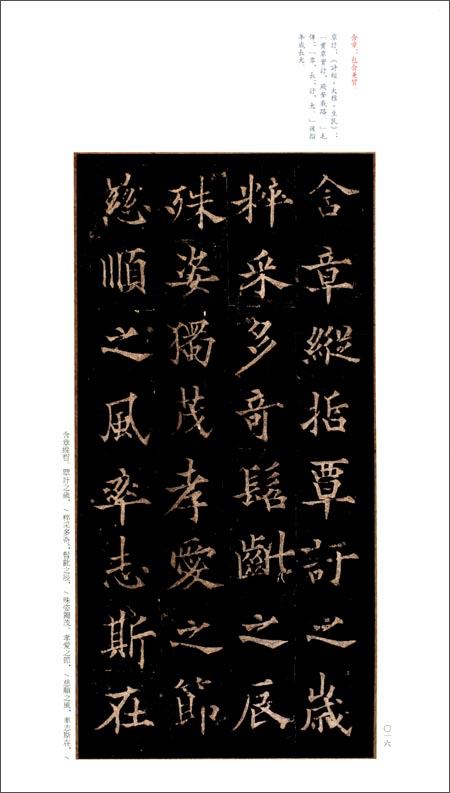 含章：包含美質。
覃訏：《詩經·大雅·生民》：
「實覃實訏，厥聲載路。」毛
傳：「覃，長；訏，大。」後指
年歲長大。
含章縱哲覃訏之歲
粹采多奇髫齔之辰
殊姿獨茂孝愛之節
慈順之風率志斯在
含章縱哲，覃訏之歲，\粹采多奇；髫齔之辰，\殊姿獨茂。孝愛之節，\慈順之風，率志斯在。\
〇一六